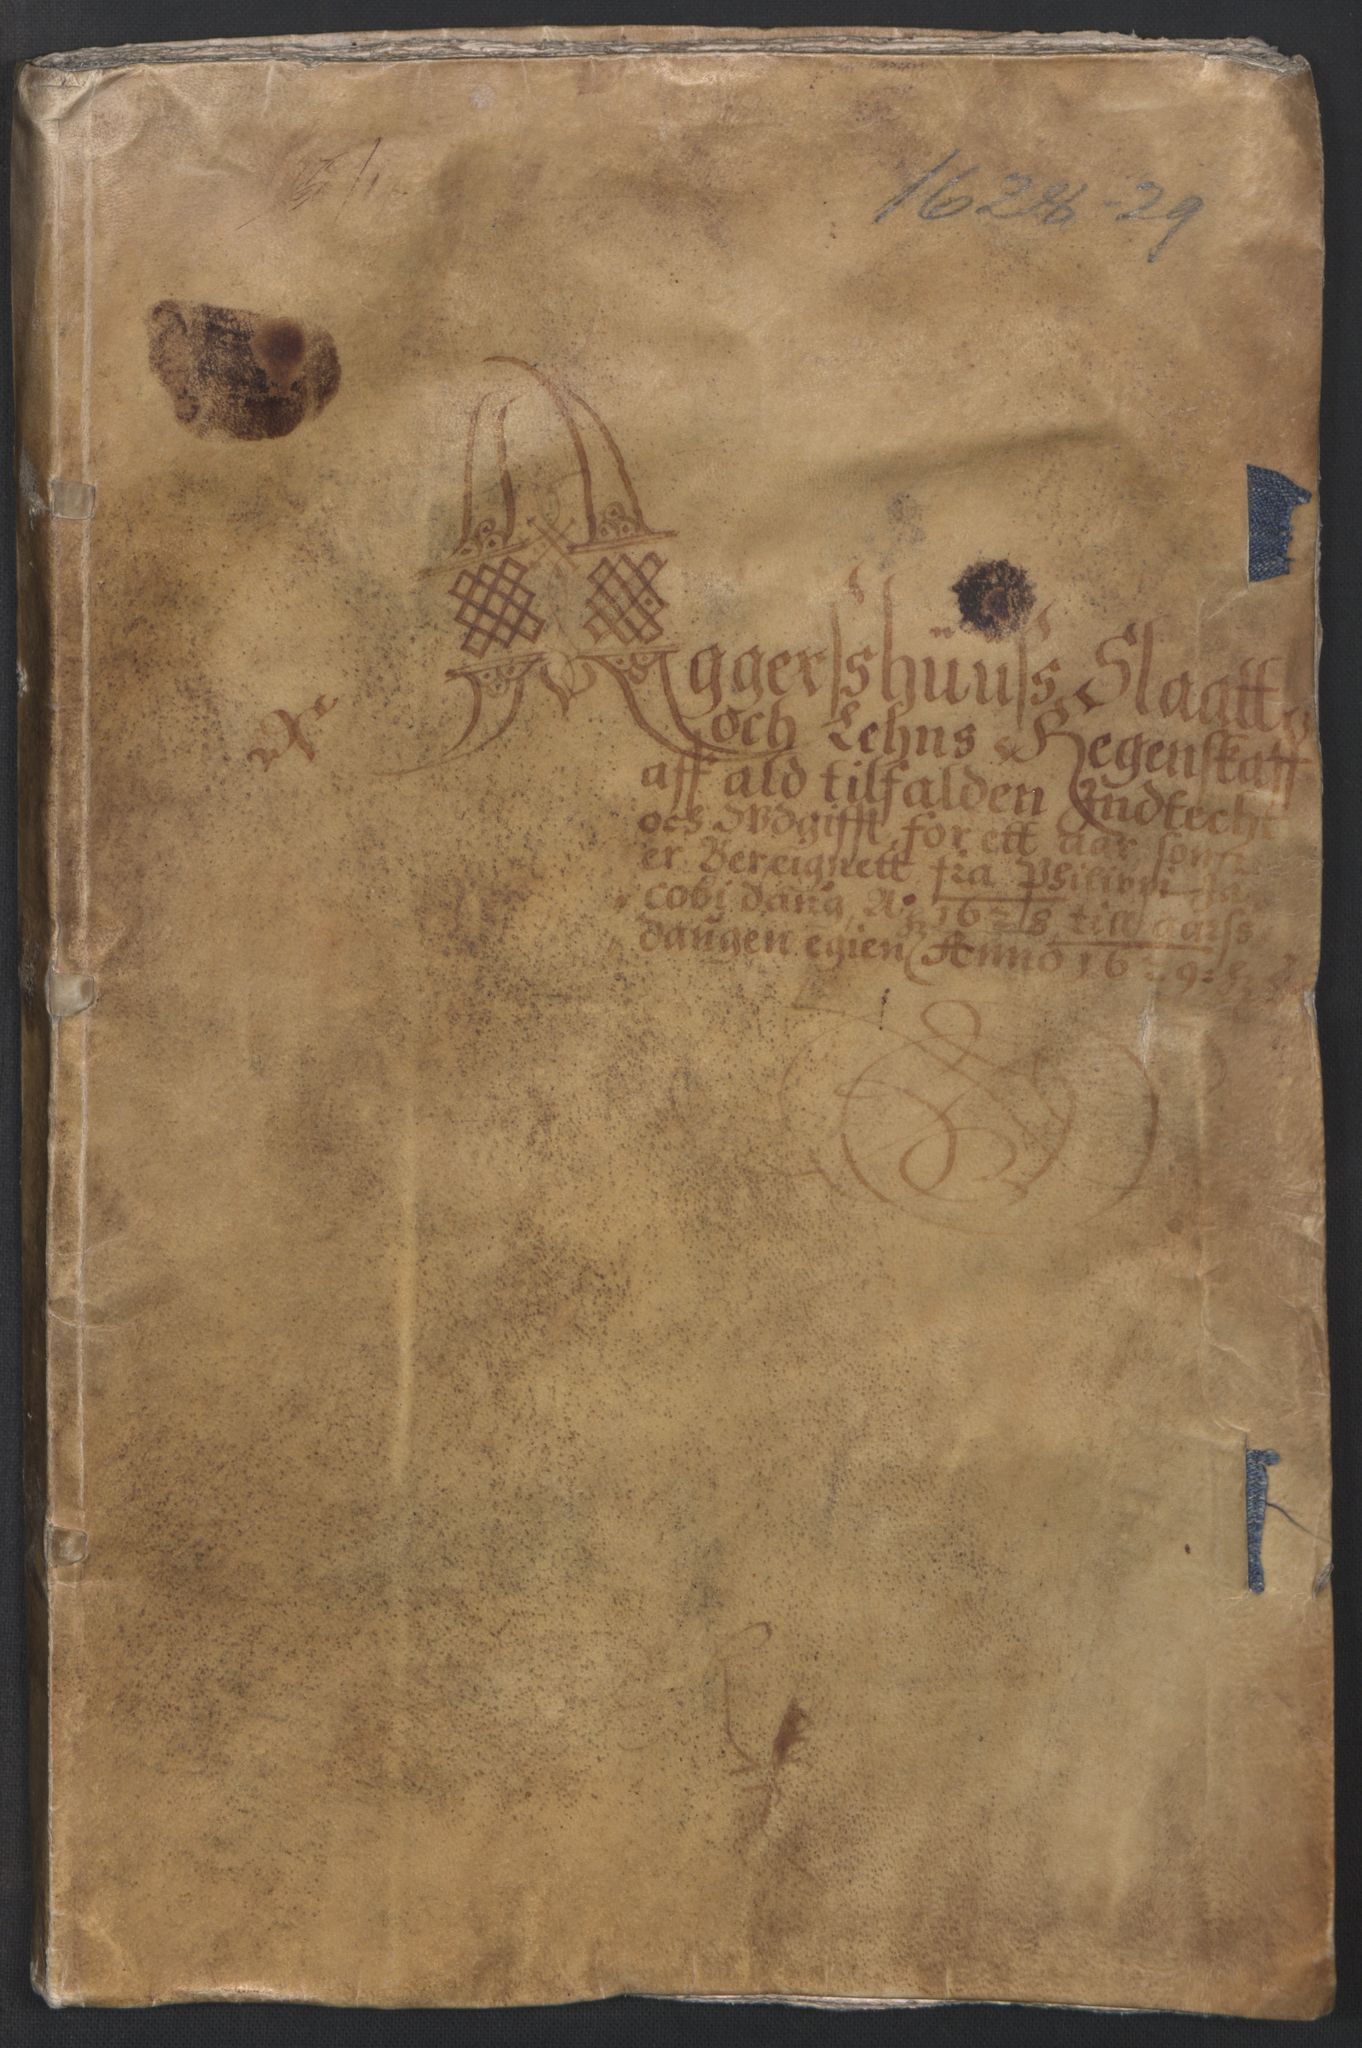 1628-29
Aggershüuss Slaatt
och Lehns Regenskaff
aff ald tilfalden Indtecht
och Wdgifft for ett aar som
er Bereignett fra Philippi Ja-
cobi daug Aº 1628 till aarss
daugen egien Anno 1629